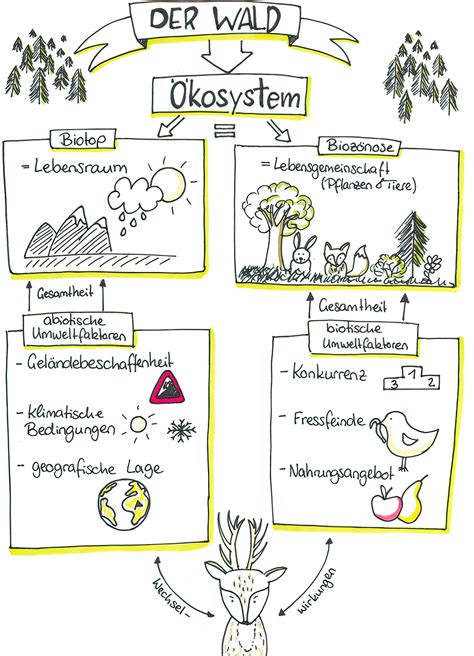 DER WALD
Ökosystem
=
Biotop
= Lebensraum
Biozönose
= Lebensgemeinschaft
(Pflanzen & Tiere)
Gesamtheit
abiotische
Umweltfaktoren
- Geländebeschaffenheit
- Klimatische
Bedingungen
- geografische Lage
Gesamtheit
biotische
Umweltfaktoren
- Konkurrenz
3 1 2
- Fressfeinde
- Nahrungsangebot
Wechsel-
wirkungen